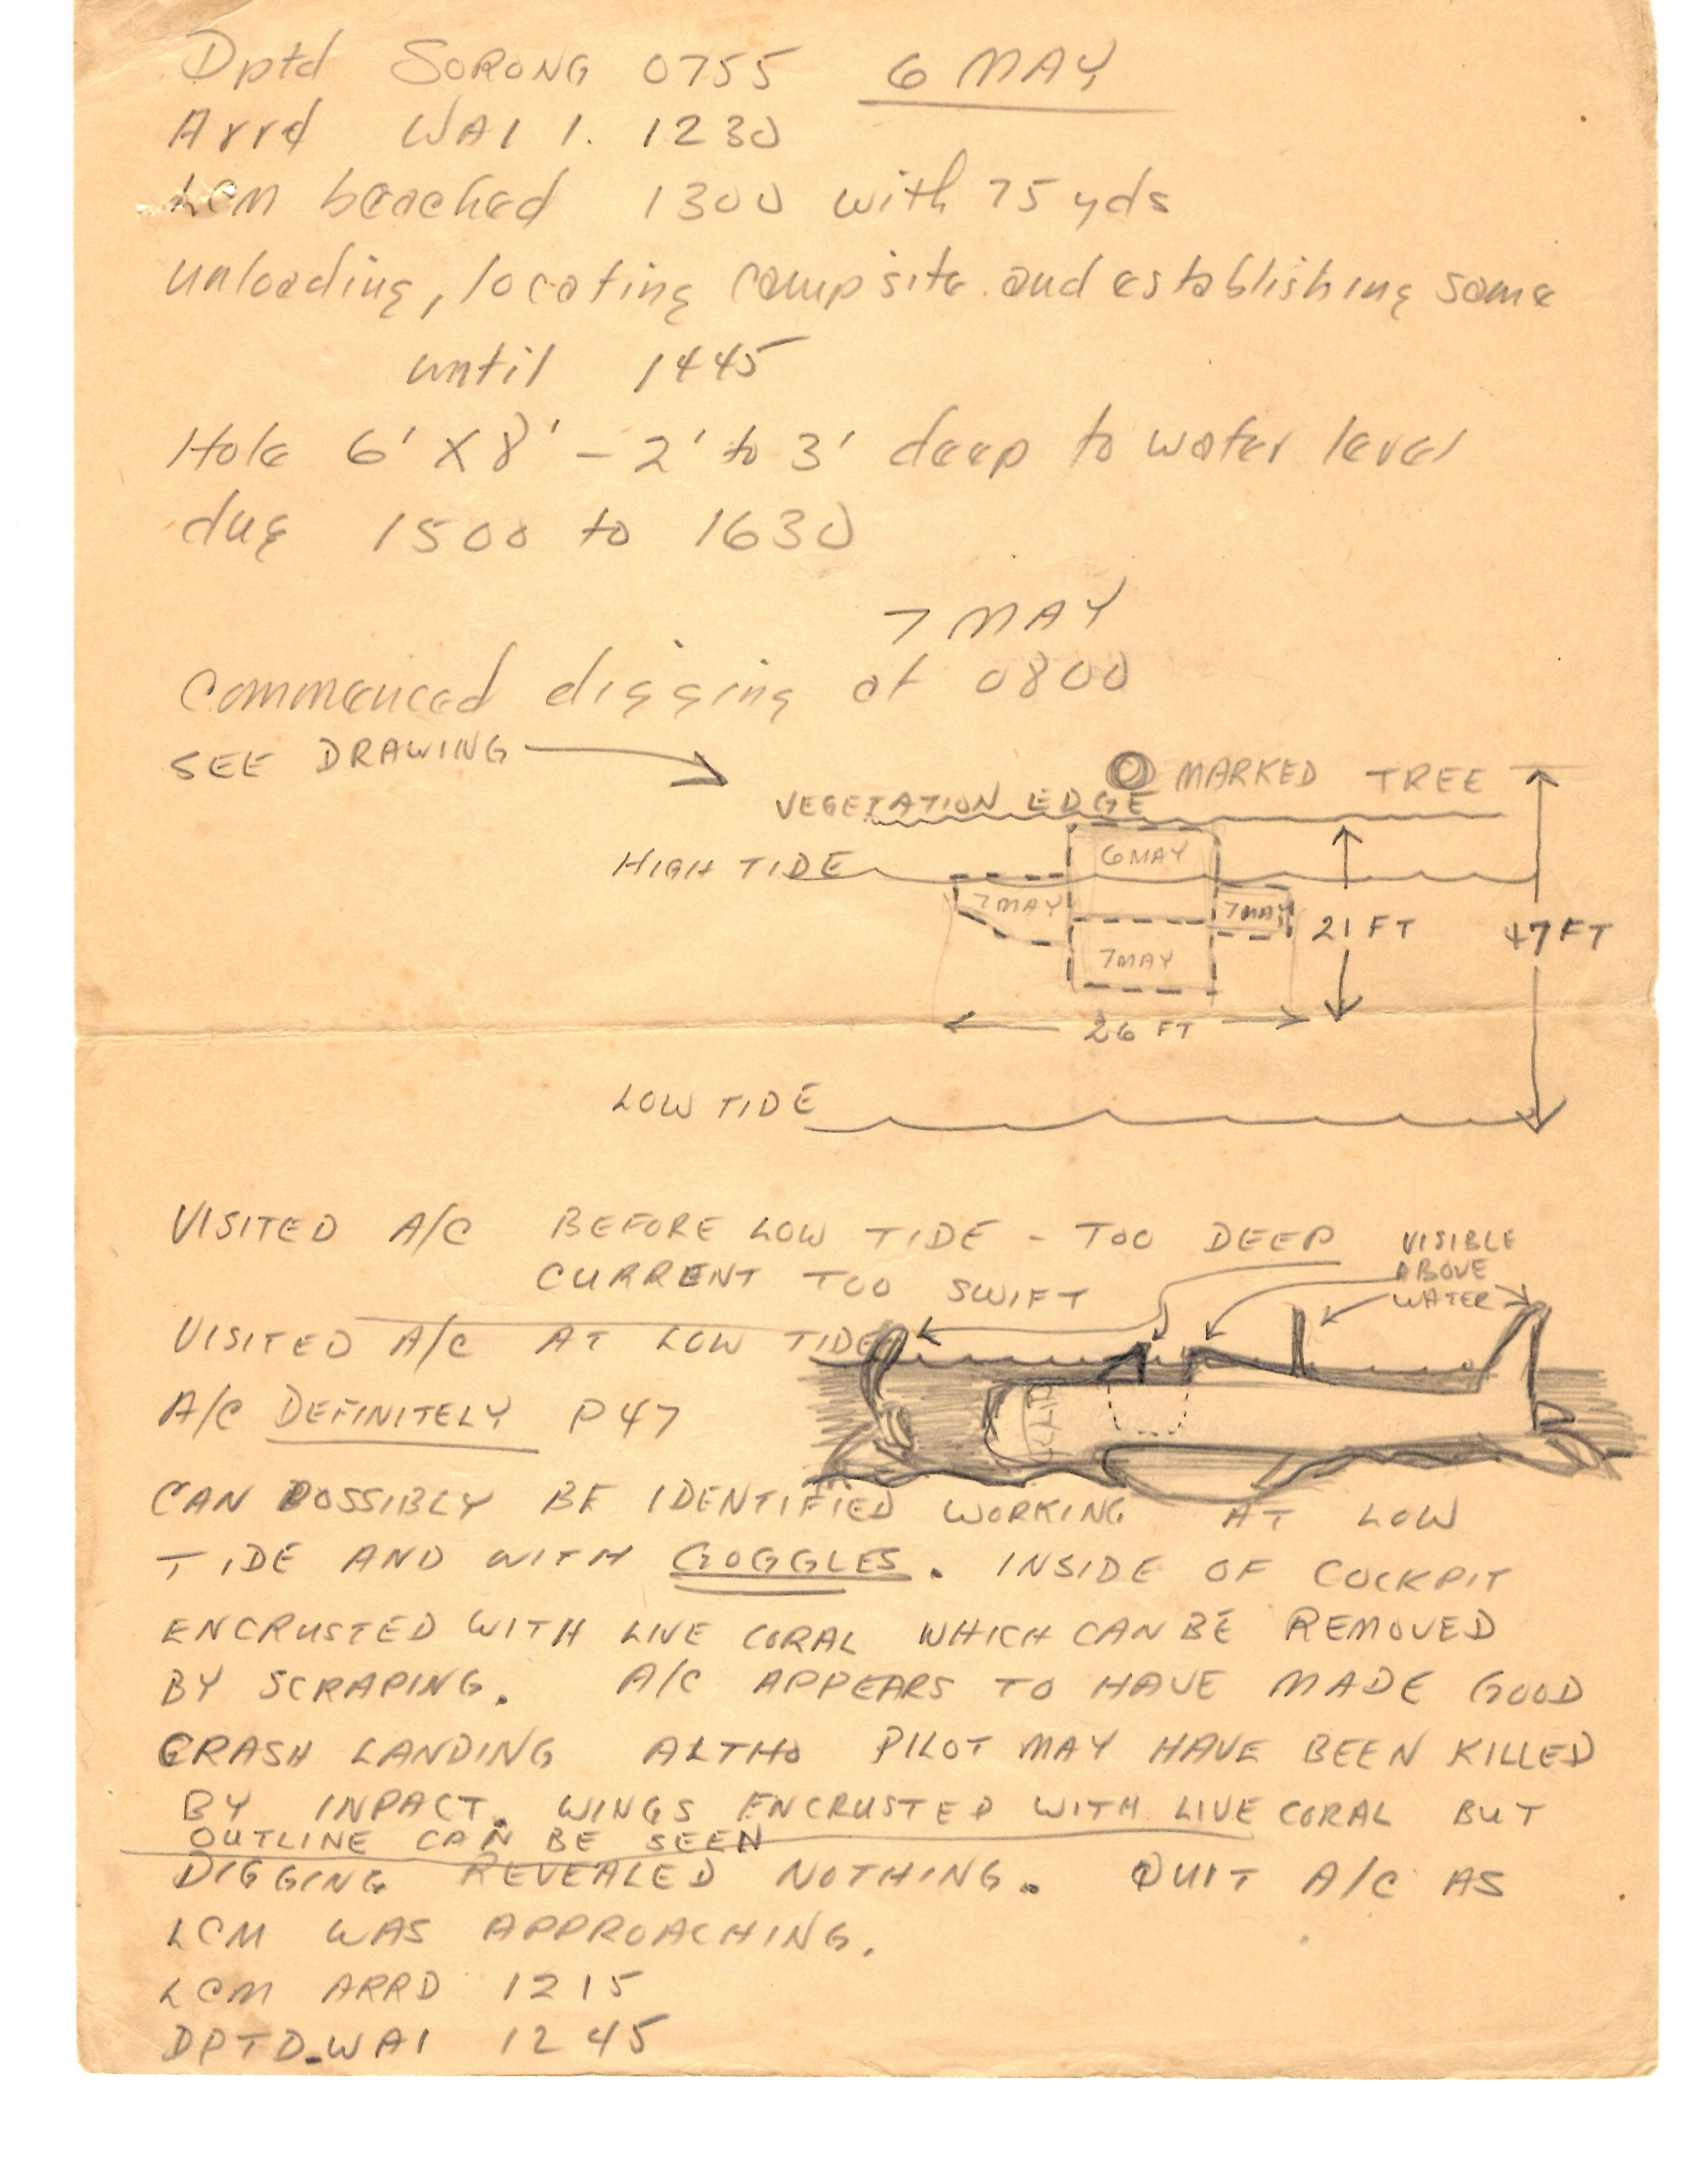 Dptd SORONG 0755 6 MAY
Arrd WAI I. 1230
LCM beached 1300 with 75 yds
unloading, locating camp site and establishing same
until 1445
Hole 6' X 8' - 2' to 3' deep to water level
dug 1500 to 1630
7 MAY
Commenced digging at 0800
SEE DRAWING
MARKED TREE
VEGETATION EDGE
HIGH TIDE
6 MAY
7 MAY
7 MAY
7 MAY
21 FT
47 FT
26 FT
LOW TIDE
VISITED A/C BEFORE LOW TIDE - TOO DEEP
CURRENT TOO SWIFT
VISIBLE
ABOVE
WATER
VISITED A/C AT LOW TIDE
A/C DEFINITELY P47
CAN POSSIBLY BE IDENTIFIED WORKING AT LOW
TIDE AND WITH GOGGLES. INSIDE OF COCKPIT
ENCRUSTED WITH LIVE CORAL WHICH CAN BE REMOVED
BY SCRAPING. A/C APPEARS TO HAVE MADE GOOD
CRASH LANDING ALTHO PILOT MAY HAVE BEEN KILLED
BY INPACT. WINGS ENCRUSTED WITH LIVE CORAL BUT
OUTLINE CAN BE SEEN
DIGGING REVEALED NOTHING. QUIT A/C AS
LCM WAS APPROACHING.
LCM ARRD 1215
DPTD WAI 1245